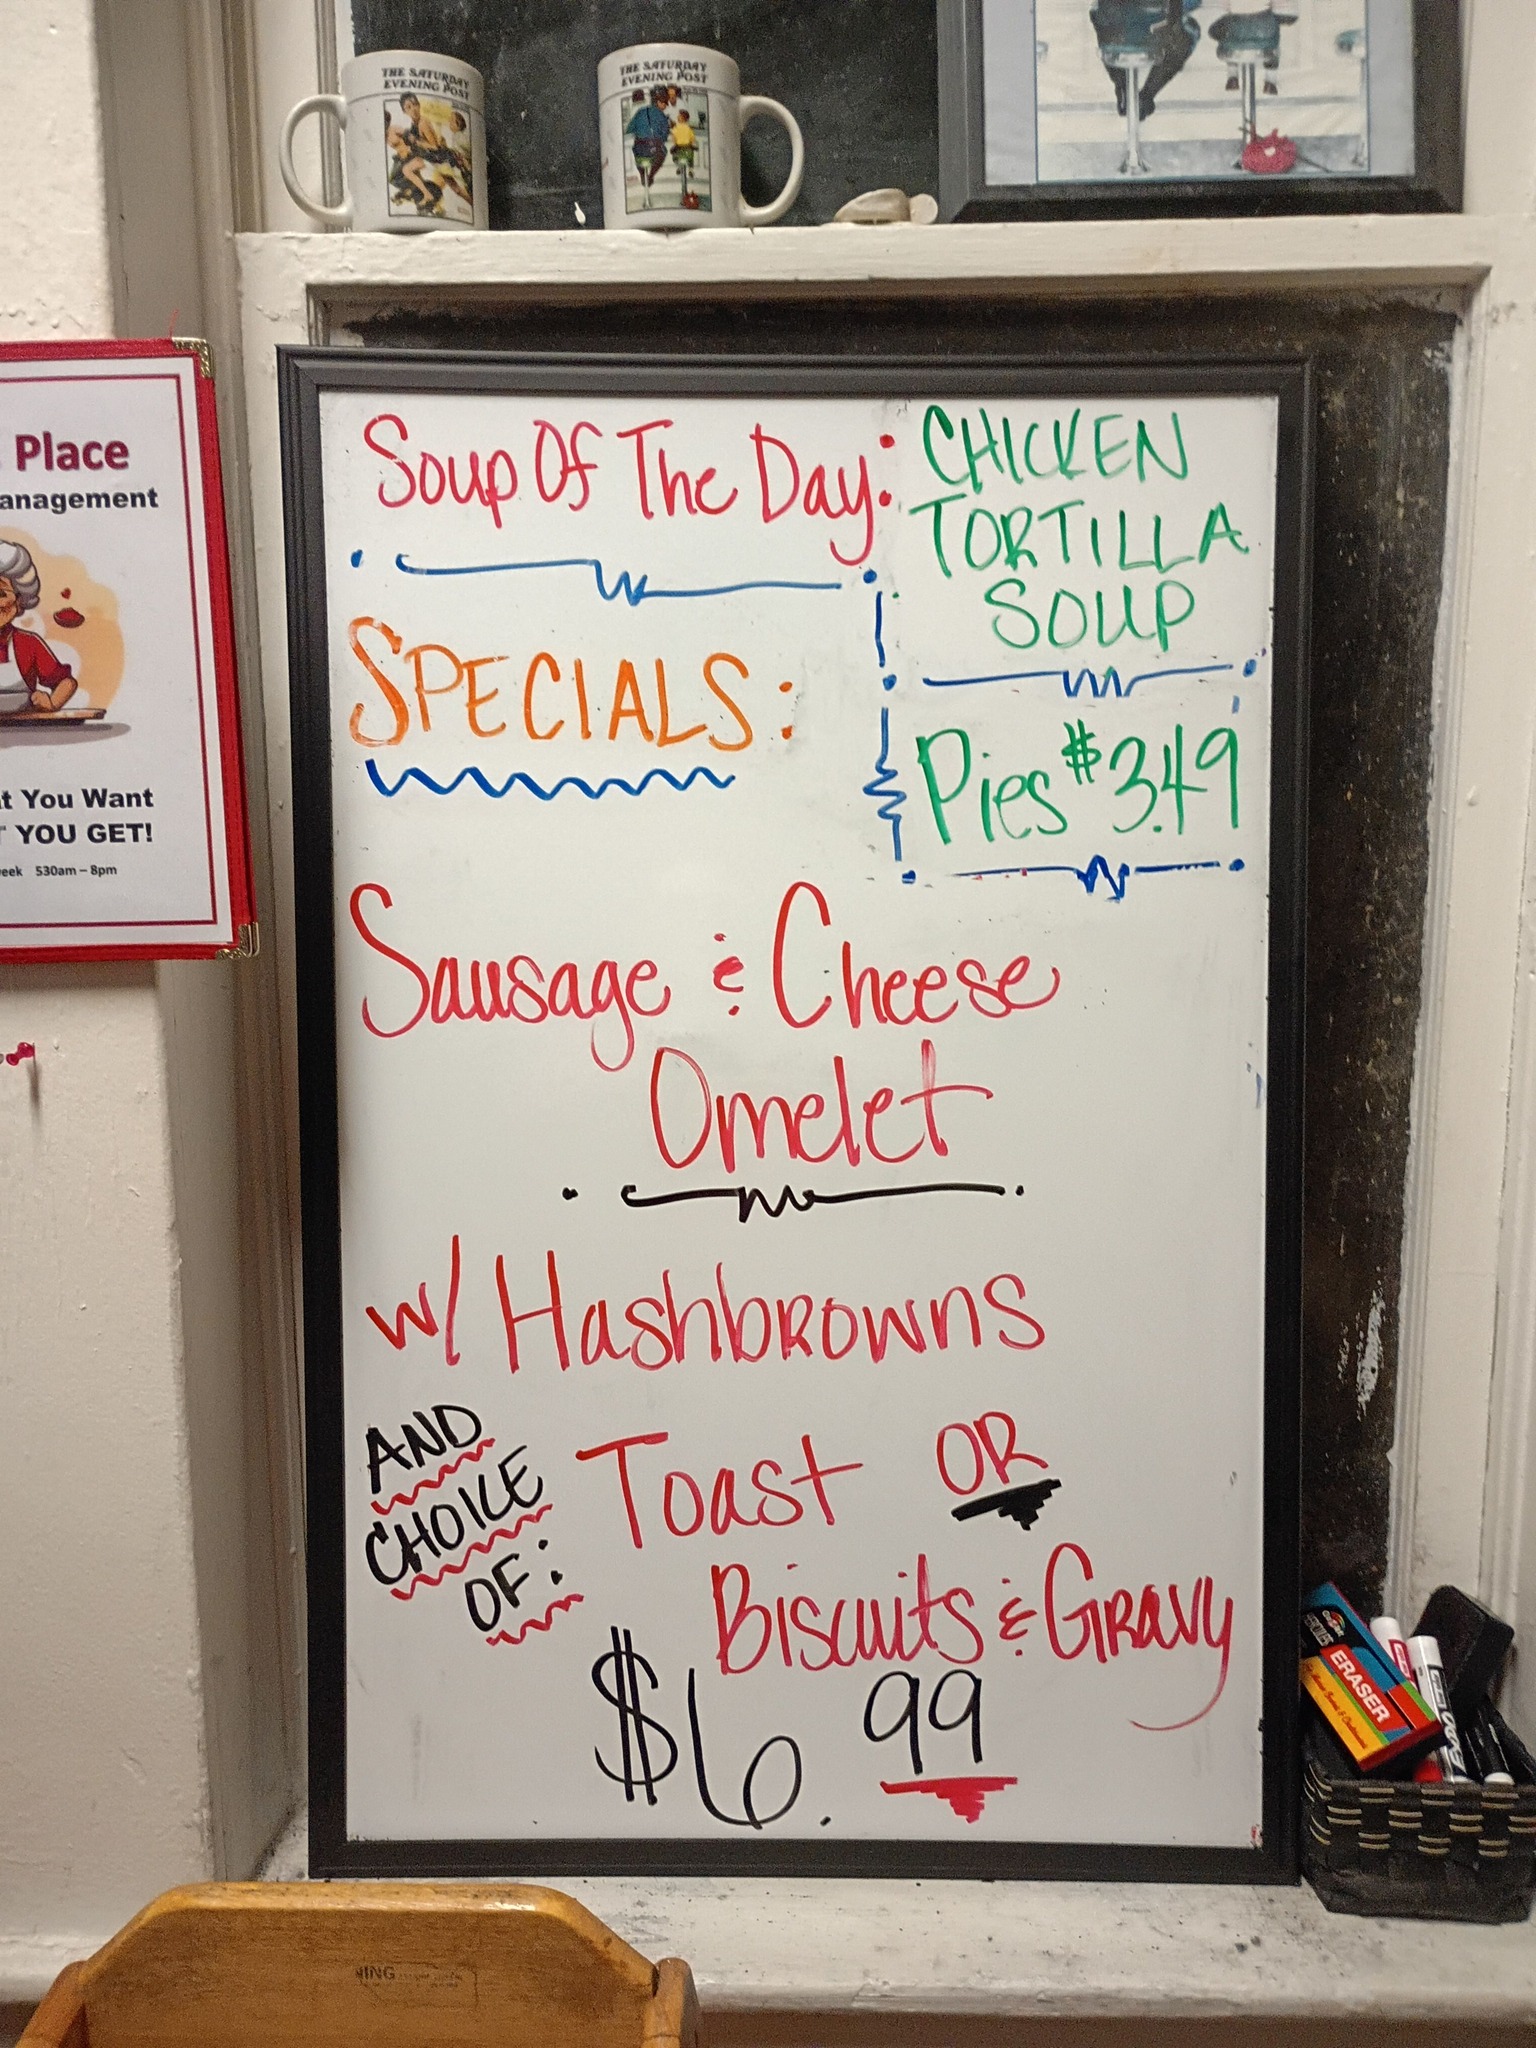 THE SATURDAY
EVENING POST
THE SATURDAY
EVENING POST
Place
anagement
t You Want
YOU GET!
eek 530am – 8pm
Soup Of The Day:
CHICKEN
TORTILLA
SOUP
SPECIALS:
Pies $3.49
Sausage & Cheese
Omelet
w/ Hashbrowns
AND
CHOICE
OF:
Toast OR
Biscuits & Gravy
$6.99
ERASER
EXPO
NING